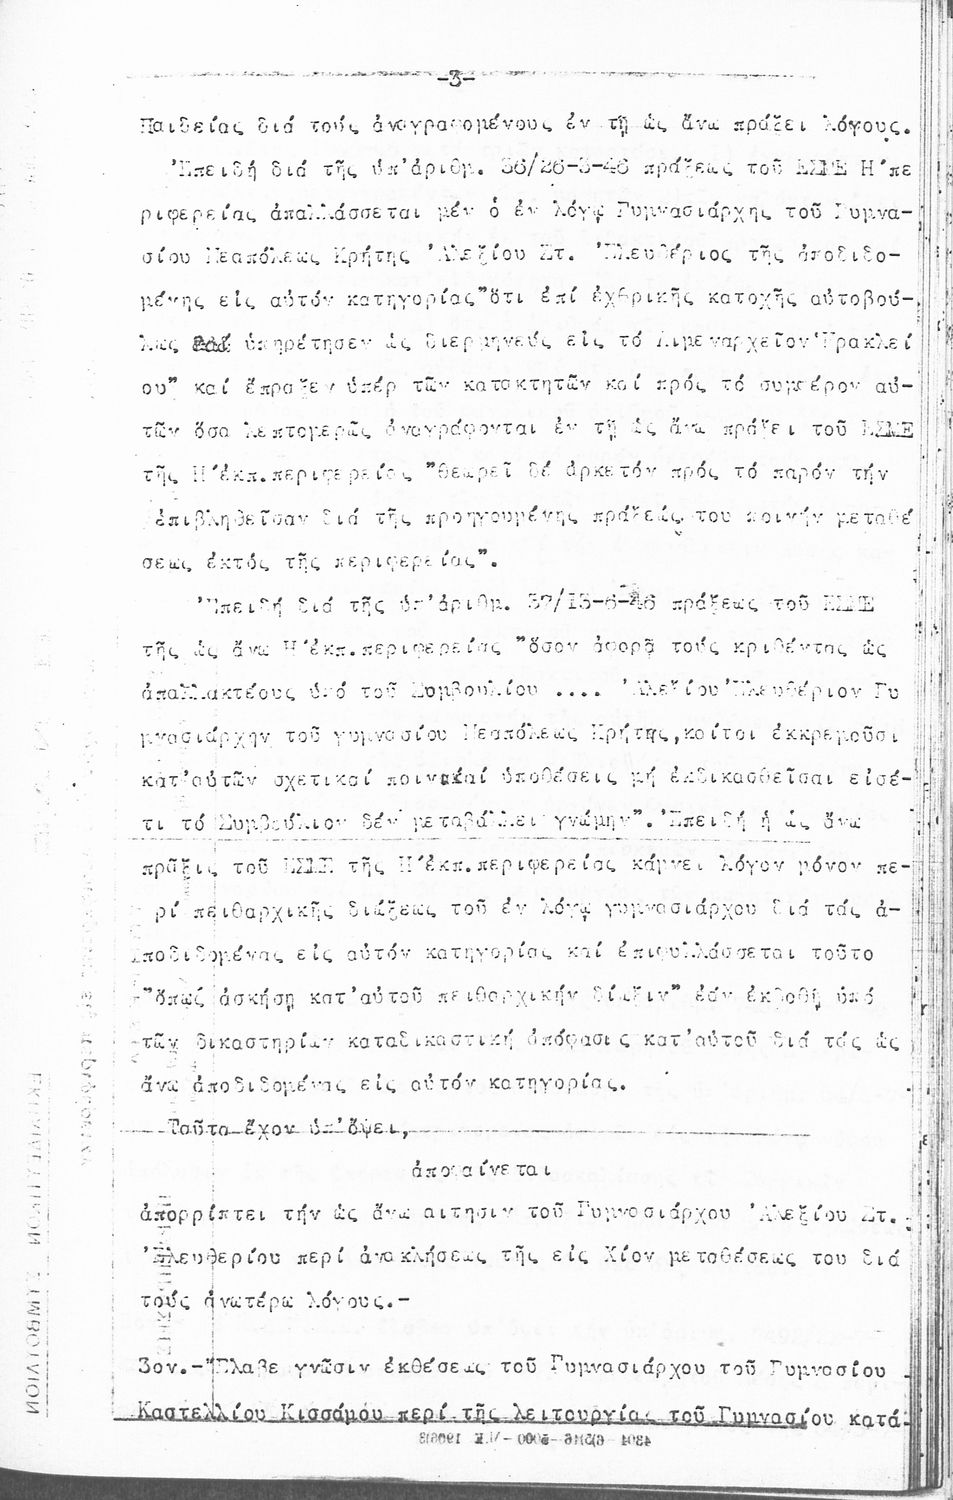 -3-
Παιδείας διά τούς ἀναγραφομένους ἐν τῇ ὡς ἄνω πράξει λόγους.
Ἐπειδή διά τῆς ὑπ'ἀριθμ. 36/26-3-46 πράξεως τοῦ ΕΣΜΕ Η'πε
ριφερείας ἀπαλλάσσεται μέν ὁ ἐν λόγῳ Γυμνασιάρχης τοῦ Γυμνα-
σίου Νεαπόλεως Κρήτης Ἀλεξίου Στ. Ἐλευθέριος τῆς ἀποδιδο-
μένης εἰς αὐτόν κατηγορίας"ὅτι ἐπί ἐχθρικῆς κατοχῆς αὐτοβού-
λως ὑπηρέτησεν ὡς διερμηνεύς εἰς τό Λιμεναρχεῖον Ἡρακλεί
ου" καί ἔπραξεν ὑπέρ τῶν κατακτητῶν καί πρός τό συμφέρον αὐ-
τῶν ὅσα λεπτομερῶς ἀναγράφονται ἐν τῇ ὡς ἄνω πράξει τοῦ ΕΣΜΕ
τῆς Η'ἐκπ.περιφερείας "θεωρεῖ δέ ἀρκετόν πρός τό παρόν τήν
ἐπιβληθεῖσαν διά τῆς προηγουμένης πράξεώς του ποινήν μεταθέ
σεως ἐκτός τῆς περιφερείας".
Ἐπειδή διά τῆς ὑπ'ἀριθμ. 37/13-6-46 πράξεως τοῦ ΕΣΜΕ
τῆς ὡς ἄνω Η'ἐκπ.περιφερείας "ὅσον ἀφορᾷ τούς κριθέντας ὡς
ἀπαλλακτέους ὑπό τοῦ Συμβουλίου .... Ἀλεξίου Ἐλευθέριον Γυ
μνασιάρχην τοῦ γυμνασίου Νεαπόλεως Κρήτης,καίτοι ἐκκρεμοῦσι
κατ'αὐτῶν σχετικαί ποινικαί ὑποθέσεις μή ἐκδικασθεῖσαι εἰσέ-
τι τό Συμβούλιον δέν μεταβάλλει γνώμην".Ἐπειδή ἡ ὡς ἄνω
πρᾶξις τοῦ ΕΣΜΕ τῆς Η'ἐκπ.περιφερείας κάμνει λόγον μόνον πε-
ρί πειθαρχικῆς διώξεως τοῦ ἐν λόγῳ γυμνασιάρχου διά τάς ἀ-
ποδιδομένας εἰς αὐτόν κατηγορίας καί ἐπιφυλλάσσεται τοῦτο
"ὅπως ἀσκήσῃ κατ'αὐτοῦ πειθαρχικήν δίωξιν" ἐάν ἐκδοθῇ ὑπό
τῶν δικαστηρίων καταδικαστική ἀπόφασις κατ'αὐτοῦ διά τάς ὡς
ἄνω ἀποδιδομένας εἰς αὐτόν κατηγορίας.
Ταῦτα ἔχον ὑπ'ὄψει,
ἀποφαίνεται
ἀπορρίπτει τήν ὡς ἄνω αιτησιν τοῦ Γυμνασιάρχου Ἀλεξίου Στ.
Ἐλευθερίου περί ἀνακλήσεως τῆς εἰς Χίον μεταθέσεως του διά
τούς ἀνωτέρω λόγους.-
3ον.-Ἔλαβε γνῶσιν ἐκθέσεως τοῦ Γυμνασιάρχου τοῦ Γυμνασίου
Καστελλίου Κισσάμου περί τῆς λειτουργίας τοῦ Γυμνασίου κατά